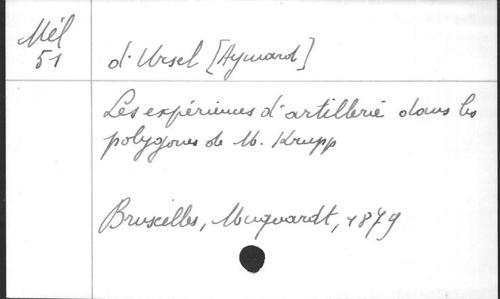 Mél
51
d'Ursel [Aymard]
Les expériences d'artillerie dans les
polygones de M. Krupp
Bruxelles, Muquardt, 1879